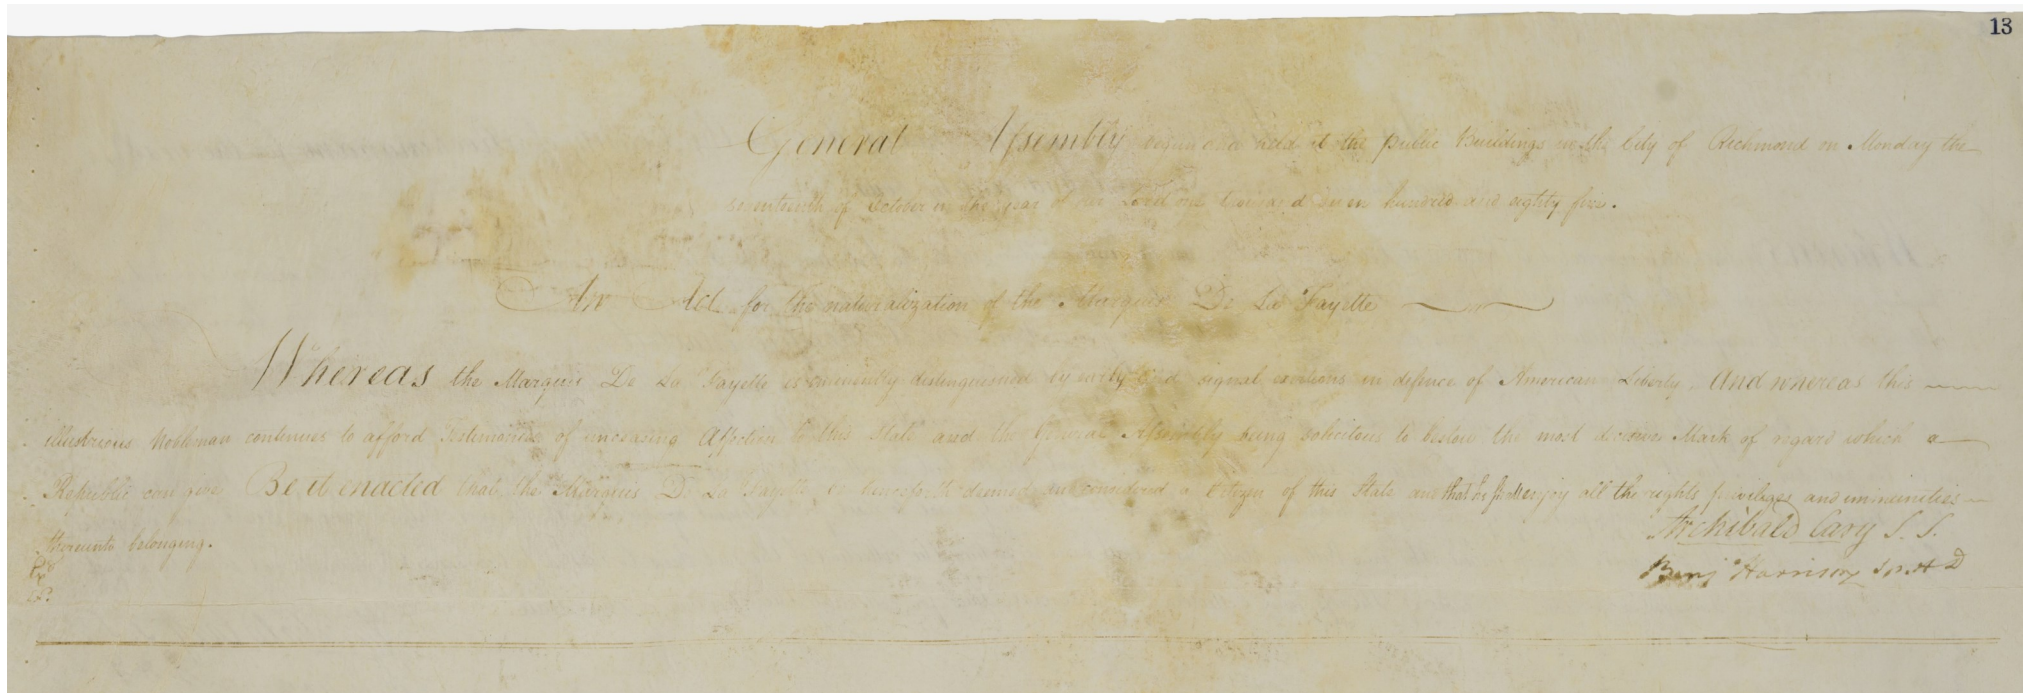 13
General Assembly begun and held at the public Buildings in the City of Richmond on Monday the
seventeenth of October in the year of our Lord one thousand seven hundred and eighty five.
An Act for the naturalization of the Marquis De La Fayette
Whereas the Marquis De La Fayette is eminently distinguished by early and signal exertions in defence of American Liberty. And whereas this
illustrious Nobleman continues to afford Testimonies of unceasing Affection to this State and the General Assembly being solicitous to bestow the most decisive Mark of regard which a
Republic can give Be it enacted that the Marquis De La Fayette be henceforth deemed and considered a Citizen of this State and that he shall enjoy all the rights privileges and immunities
thereunto belonging.
Archibald Cary S. S.
Benj Harrison Sp. H D